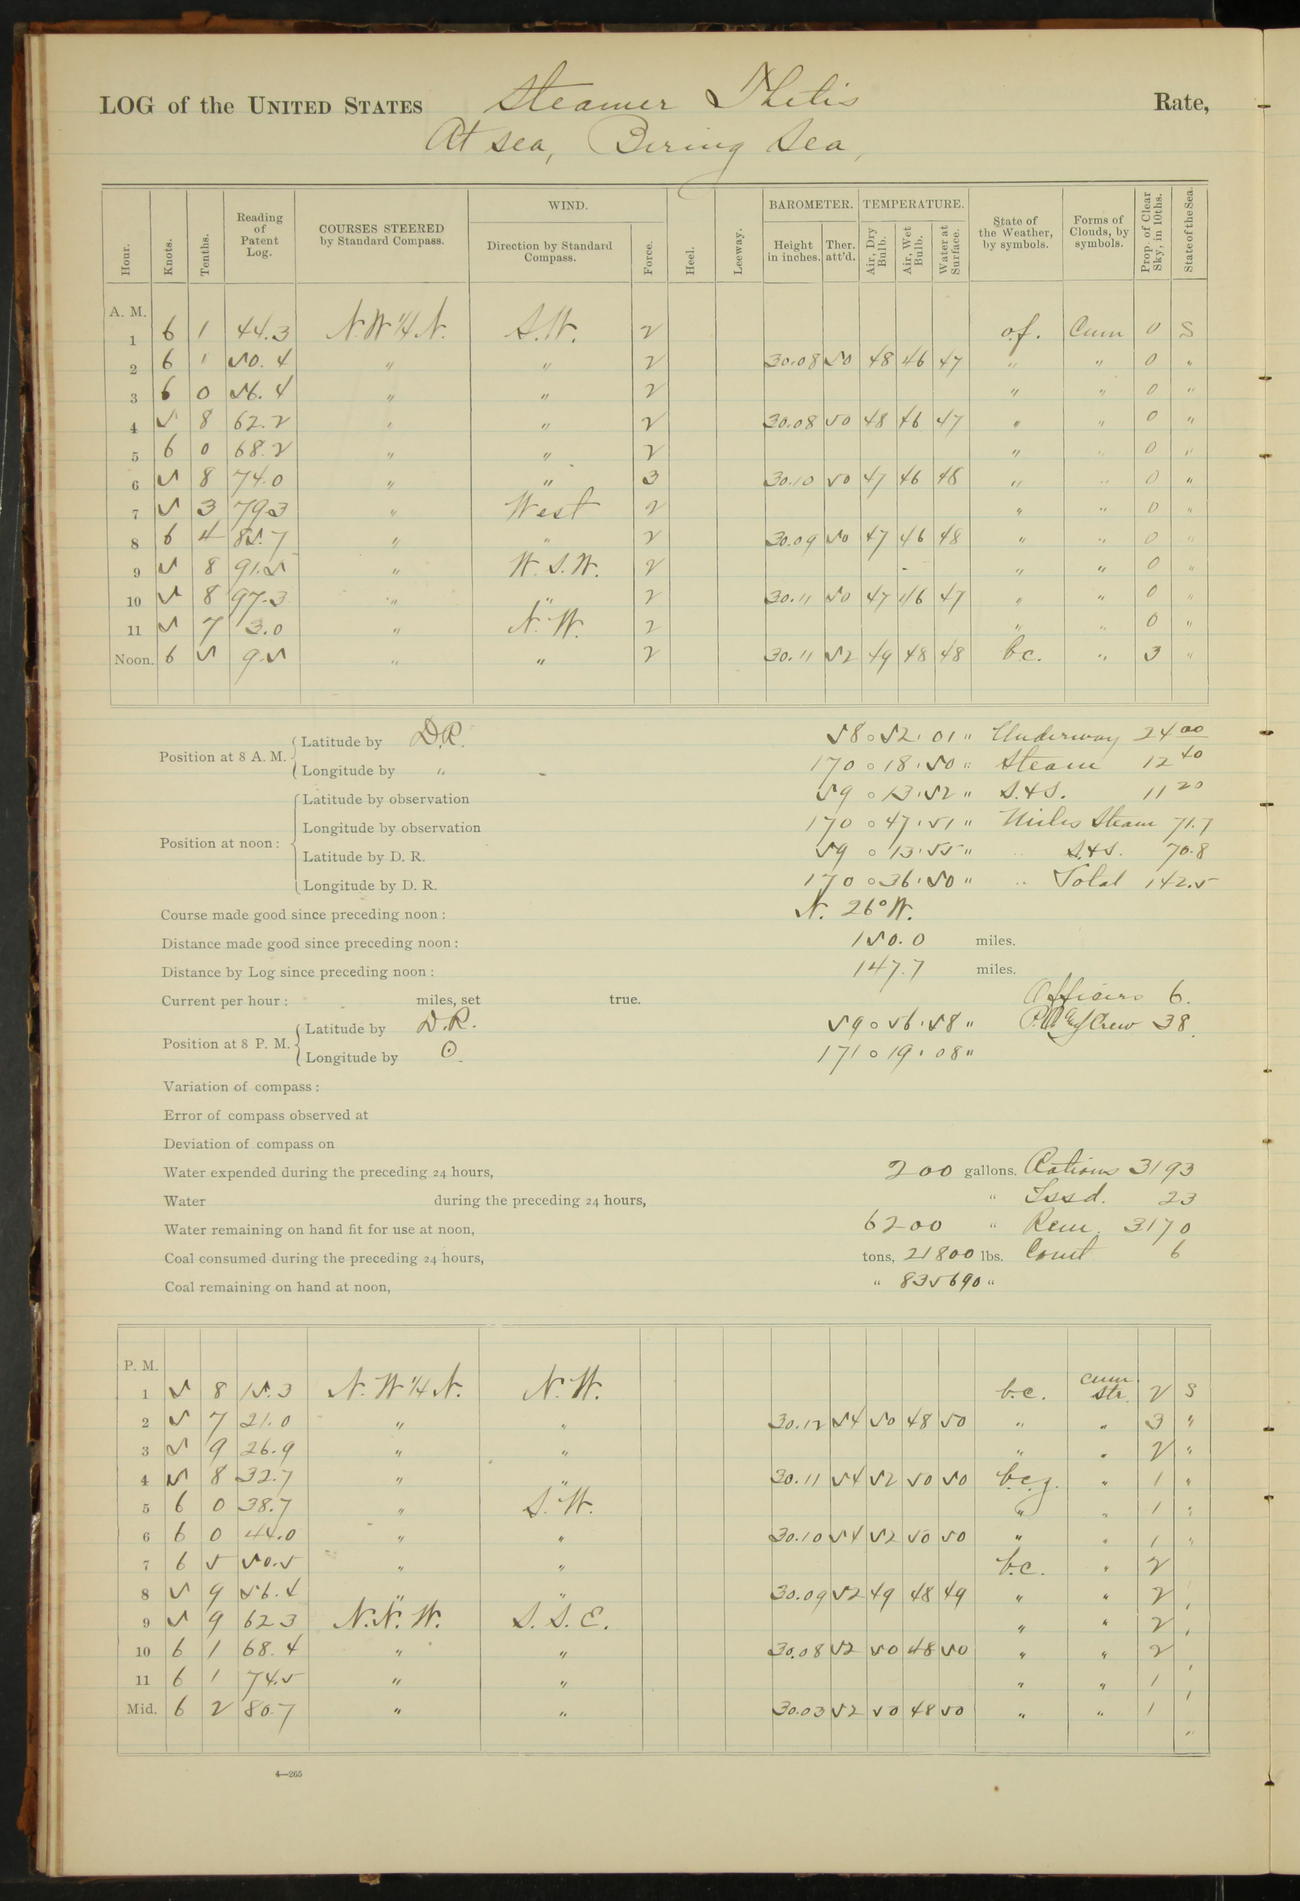 LOG of the UNITED STATES Steamer Thetis Rate,
At sea, Bering Sea,
Hour. Knots. Tenths. Reading of Patent Log. COURSES STEERED by Standard Compass. WIND. Direction by Standard Compass. Force. Heel. Leeway. BAROMETER. Height in inches. Ther. att'd. TEMPERATURE. Air, Dry Bulb. Air, Wet Bulb. Water at Surface. State of the Weather, by symbols. Forms of Clouds, by symbols. Prop. of Clear Sky, in 10ths. State of the Sea.
A. M.
1 6 1 44.3 N.W ¼ N. S.W. 2 o.f. Cum 0 S
2 6 1 50.4 " " 2 30.08 50 48 46 47 " " 0 "
3 6 0 56.4 " " 2 " " 0 "
4 5 8 62.2 " " 2 30.08 50 48 46 47 " " 0 "
5 6 0 68.2 " " 2 " " 0 "
6 5 8 74.0 " " 3 30.10 50 47 46 48 " " 0 "
7 5 3 79.3 " West 2 " " 0 "
8 6 4 85.7 " " 2 30.09 50 47 46 48 " " 0 "
9 5 8 91.5 " W.S.W. 2 " " 0 "
10 5 8 97.3 " " 2 30.11 50 47 46 47 " " 0 "
11 5 7 3.0 " N.W. 2 " " 0 "
Noon. 6 5 9.5 " " 2 30.11 52 49 48 48 b.c. " 3 "
Position at 8 A. M. Latitude by D.R. 58° 52' 01" Underway 24 00
Longitude by " 170° 18' 50" Steam 12 40
Position at noon: Latitude by observation 59° 13' 52" S.&S. 11 20
Longitude by observation 170° 47' 51" Miles Steam 71.7
Latitude by D. R. 59° 13' 55" " S.&S. 70.8
Longitude by D. R. 170° 36' 50" " Total 142.5
Course made good since preceding noon: N. 26° W.
Distance made good since preceding noon: 150.0 miles.
Distance by Log since preceding noon: 147.7 miles.
Current per hour: miles, set true. Officers 6.
Position at 8 P. M. Latitude by D.R. 59° 56' 58" Crew 38.
Longitude by ⊙ 171° 19' 08"
Variation of compass:
Error of compass observed at
Deviation of compass on
Water expended during the preceding 24 hours, 200 gallons. Rations 3193
Water during the preceding 24 hours, " Issd. 23
Water remaining on hand fit for use at noon, 6200 " Rem. 3170
Coal consumed during the preceding 24 hours, tons, 21800 lbs. Comt 6
Coal remaining on hand at noon, " 835690 "
P. M.
1 5 8 15.3 N.W ¼ N. N.W. b.c. cum. str. 2 S
2 5 7 21.0 " " 30.12 54 50 48 50 " " 3 "
3 5 9 26.9 " " " " 2 "
4 5 8 32.7 " " 30.11 54 52 50 50 b.c.g. " 1 "
5 6 0 38.7 " S.W. " " 1 "
6 6 0 44.0 " " 30.10 54 52 50 50 " " 1 "
7 6 5 50.5 " " b.c. " 2
8 5 9 56.4 " " 30.09 52 49 48 49 " " 2 "
9 5 9 62.3 N.N.W. S.S.E. " " 2 "
10 6 1 68.4 " " 30.08 52 50 48 50 " " 2 "
11 6 1 74.5 " " " " 1 "
Mid. 6 2 80.7 " " 30.03 52 50 48 50 " " 1 "
4—265